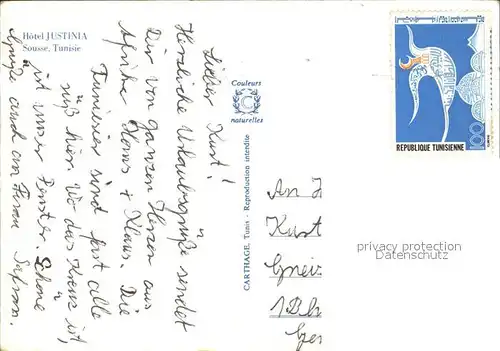 Hôtel JUSTINIA
Sousse, Tunisie
Lieber Kurt!
Herzliche Urlaubsgrüße sendet
Dir von ganzem Herzen aus
Afrika Hans + Klaus. Die
Tunesier sind fast alle
süß hier. Wo das Kreuz ist,
ist unser Fenster. Schöne
Grüße auch an Frau
Couleurs
naturelles
CARTHAGE, Tunis - Reproduction interdite
An
Kurt
REPUBLIQUE TUNISIENNE
100
privacy protection
Datenschutz